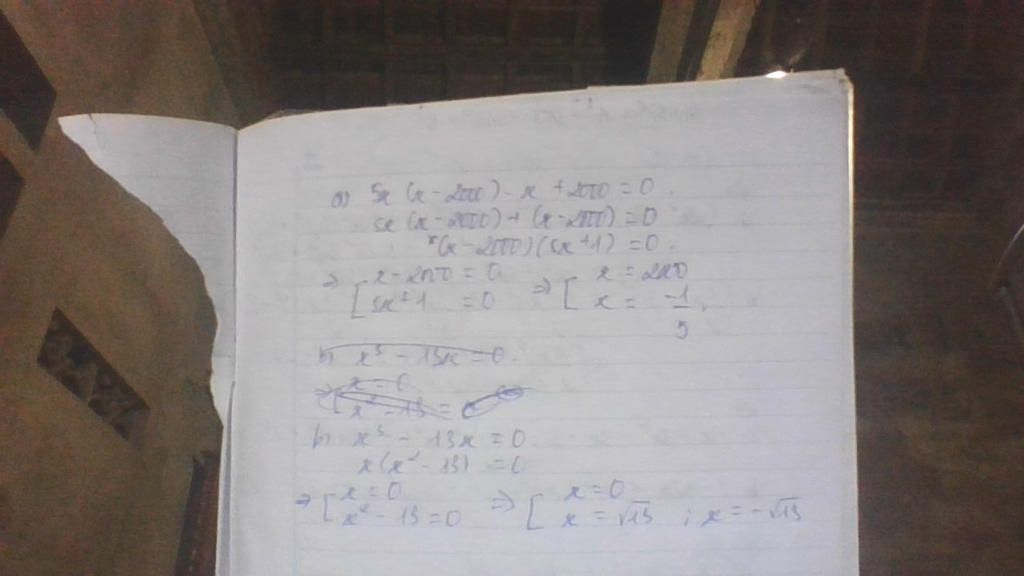 a) 5x (x - 2000) - x + 2000 = 0.
5x (x - 2000) + (x - 2000) = 0
(x - 2000)(5x + 1) = 0.
⇒ [ x - 2000 = 0 ⇒ [ x = 2000
5x + 1 = 0 x = -1/5.
b) x³ - 13x = 0.
⇒ [ x = 0
x² - 13 =
b) x³ - 13x = 0
x(x² - 13) = 0
⇒ [ x = 0 ⇒ [ x = 0
x² - 13 = 0 x = √13 ; x = -√13